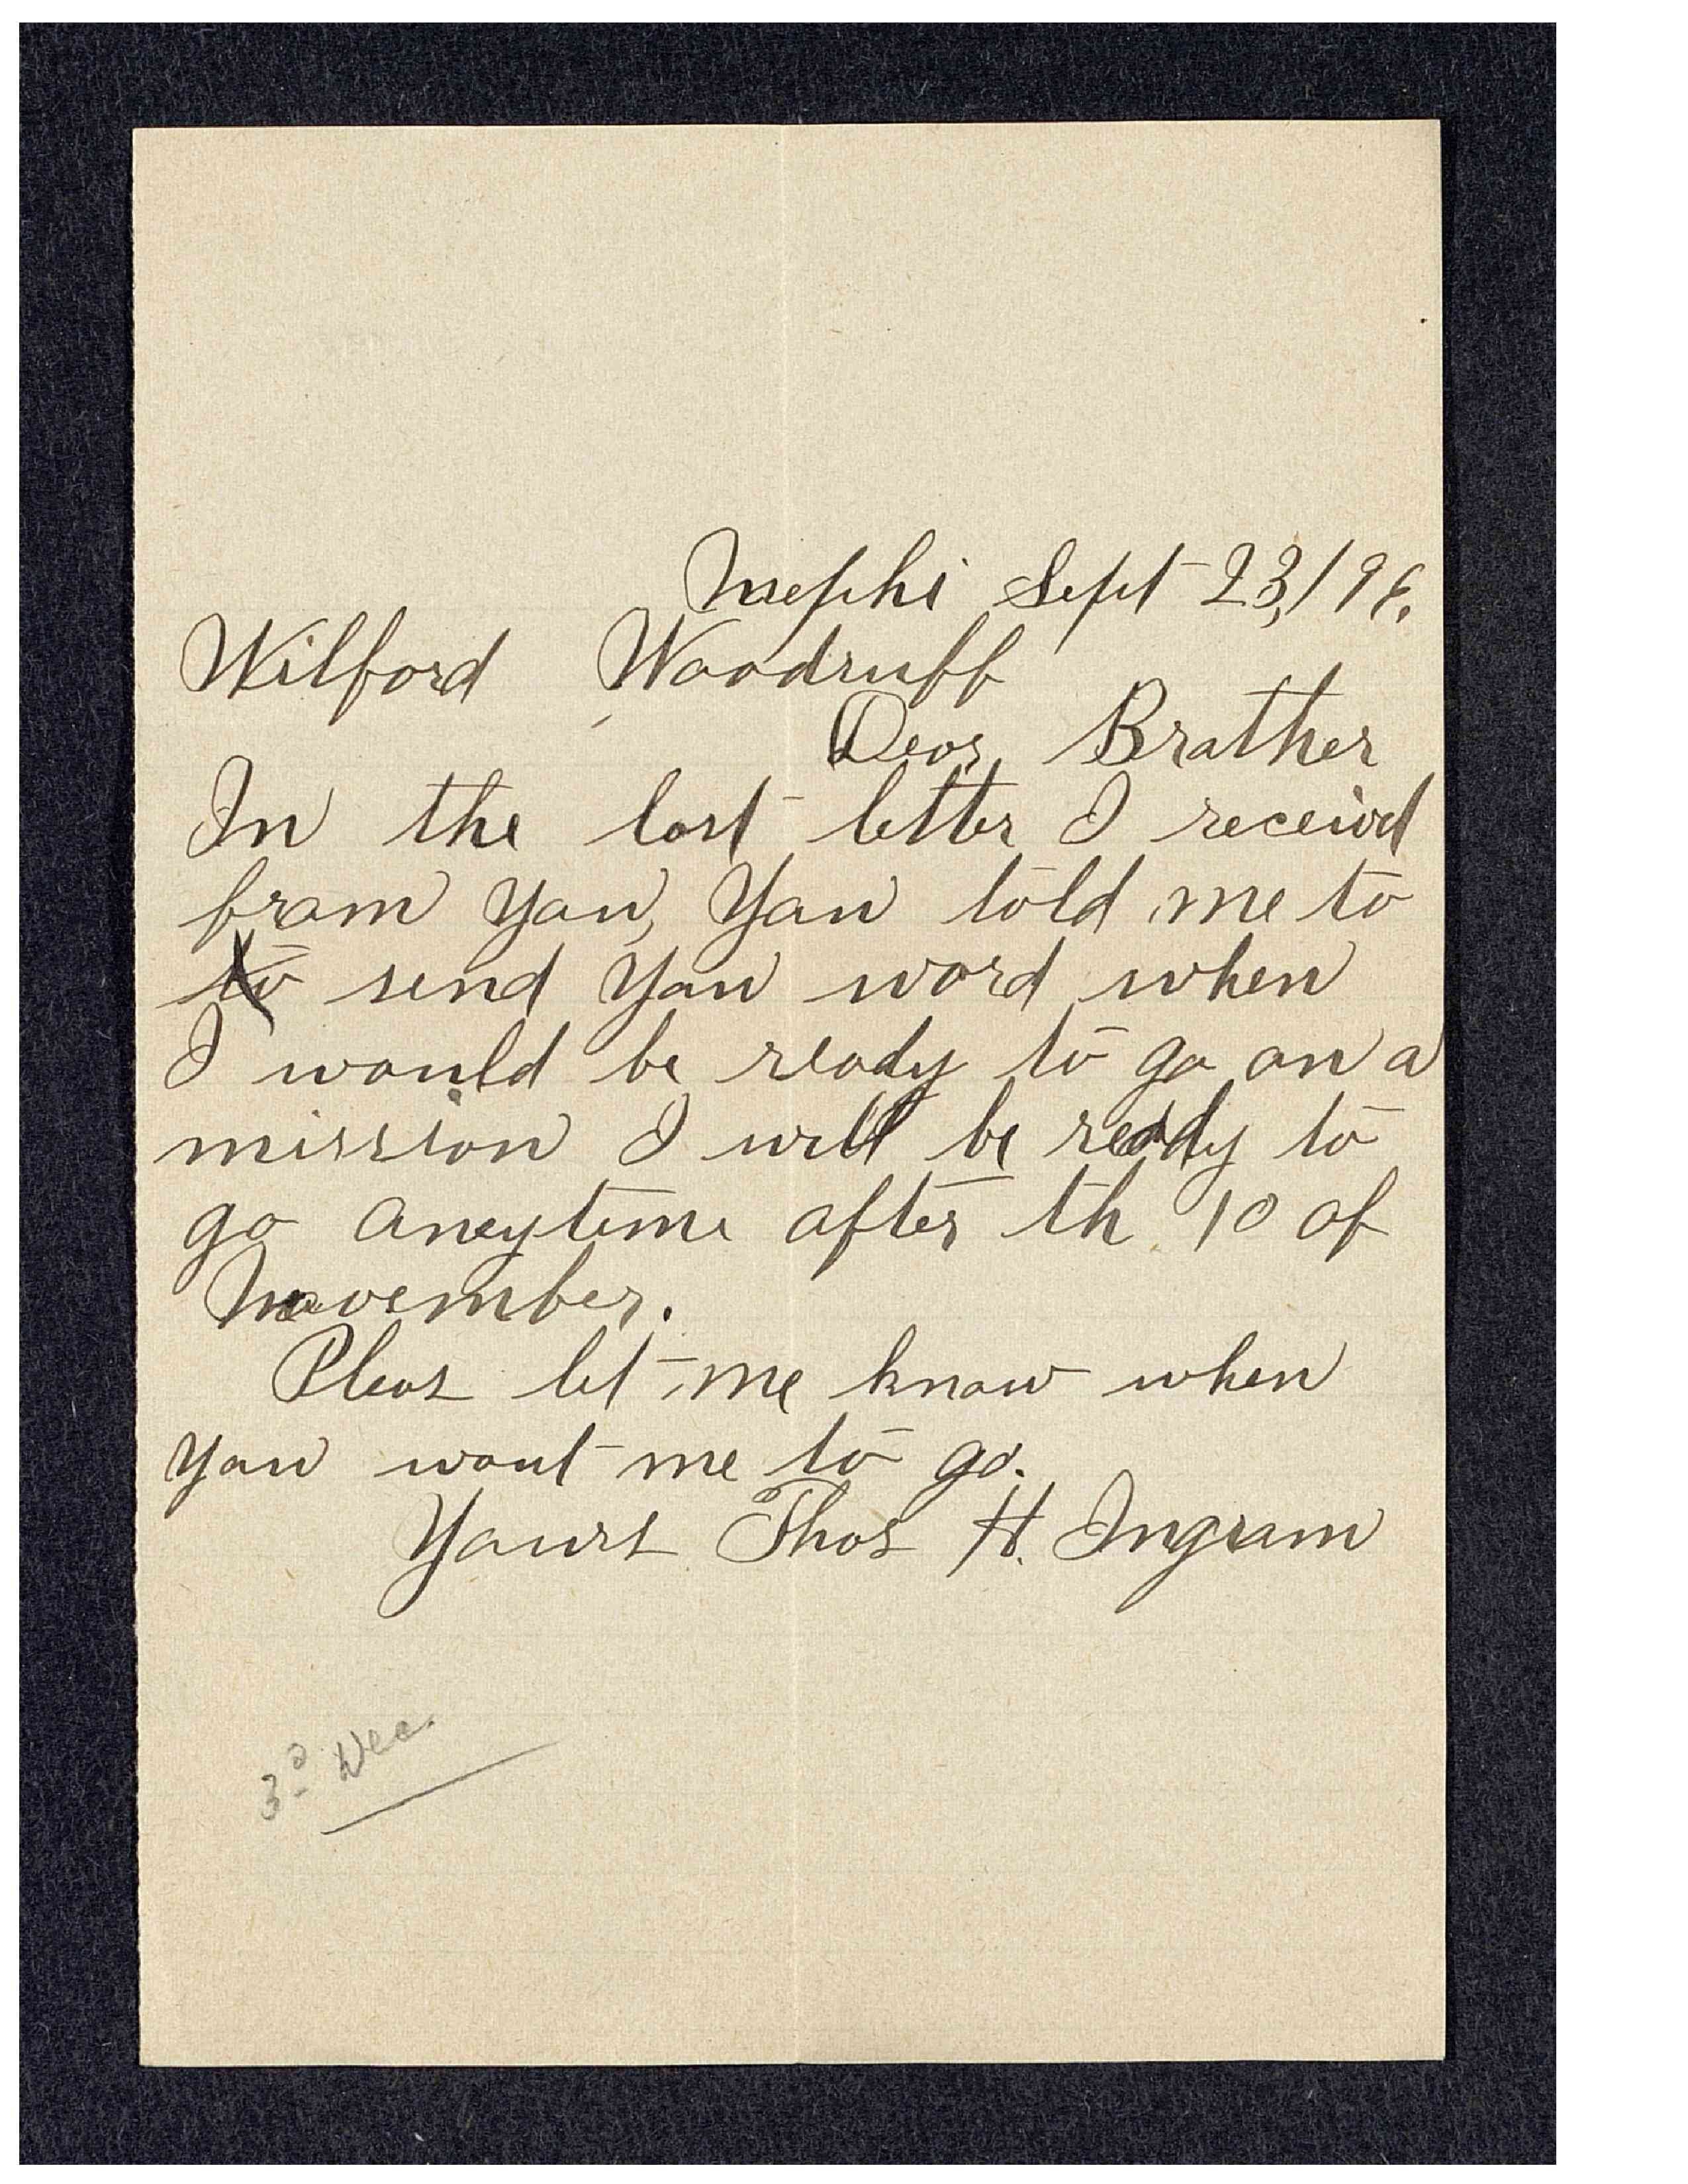 Nephi Sept 23, / 96.
Wilford Woodruff
Dear Brother
In the last letter I receivd
from you, you told me to
to send you word when
I would be ready to go on a
mission I will be ready to
go aneytime after th 10 of
November.
Pleas let me know when
you want me to go.
Yours Thos H. Ingram
3d Dec.